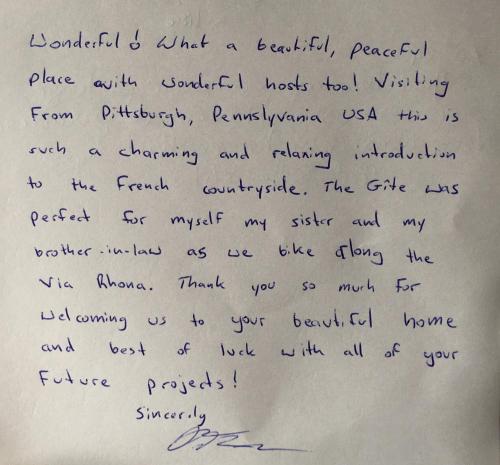 Wonderful! What a beautiful, peaceful
place with wonderful hosts too! Visiting
From Pittsburgh, Pennslyvania USA this is
such a charming and relaxing introduction
to the French countryside. The Gîte was
perfect for myself my sister and my
brother-in-law as we bike along the
Via Rhona. Thank you so much for
welcoming us to your beautiful home
and best of luck with all of your
Future projects!
Sincerily